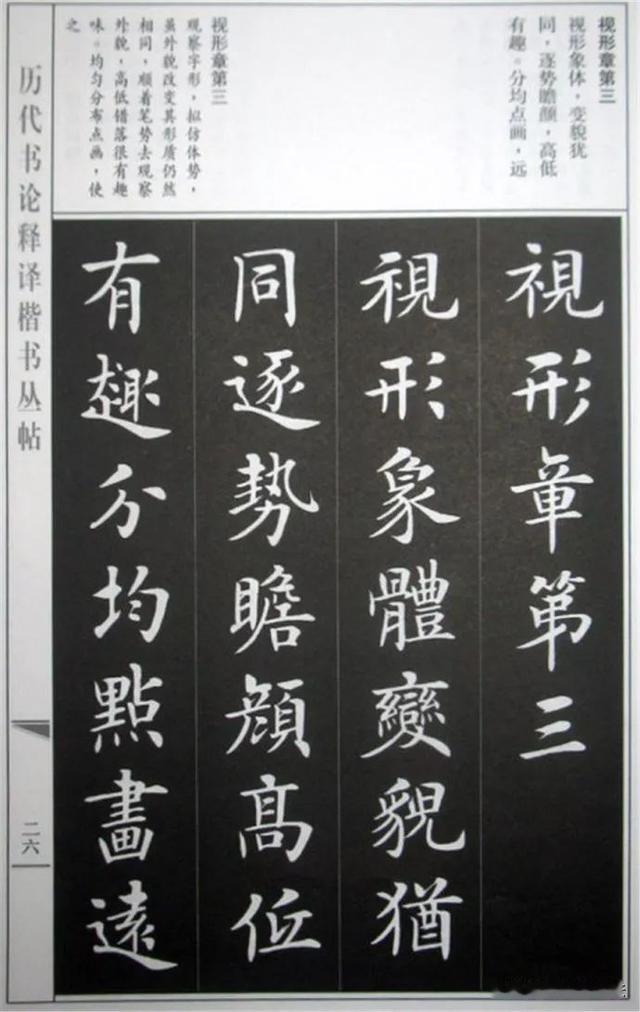 视形章第三
视形象体，变貌犹
同，逐势瞻颜，高低
有趣。分均点画，远
视形章第三
观察字形，拟仿体势，
虽外貌改变其形质仍然
相同，顺着笔势去观察
外貌，高低错落很有趣
味。均匀分布点画，使
之
視形章第三
視形象體變貌猶
同逐勢瞻顔髙低
有趣分均點畫遠
历代书论释译楷书丛帖
二六